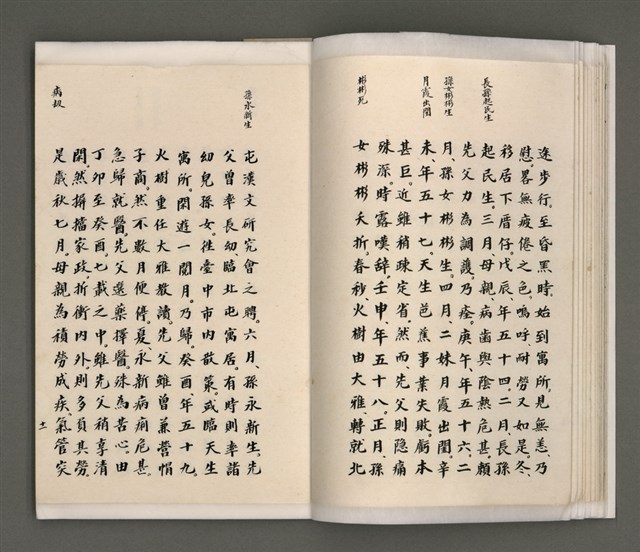 長孫起民生
孫女彬彬生
月霞出閣
彬彬死
途步行。至昏黑時。始到寓所。見無恙。乃
慰。畧無疲倦之色。嗚呼耐勞又如是。冬、
移居下厝仔。戊辰、年五十四。二月、長孫
起民生。三月、母親、病齒與陰熱危甚。賴
先父力為調護。乃痊。庚午、年五十六。二
月、孫女彬彬生。四月、二妹月霞出閣。辛
未、年五十七。天生芭蕉事業失敗。虧本
甚巨。近雖稍疎定省。然而、先父則隱痛
殊深。時露嘆辭。壬申、年五十八。正月、孫
女彬彬夭折。春秒、火樹由大雅、轉就北
孫永新生
病劇
屯漢文研究會之聘。六月、孫永新生。先
父曾率長幼、臨北屯寓居。有時則率諸
幼兒孫女。往臺中市內散策。或臨天生
寓所。閑遊一闋月。乃歸。癸酉、年五十九。
火樹重任大雅教讀。先父雖曾兼營帽
子商。然不數月便停。夏、永新病痢危甚。
急歸就醫。先父選藥擇醫。殊為苦心。由
丁卯至癸酉。七載之中。雖先父稍享清
閑。然摒擋家政。折衝內外。則多負其勞。
是歲秋七月。母親為積勞成疾。氣管突
十一